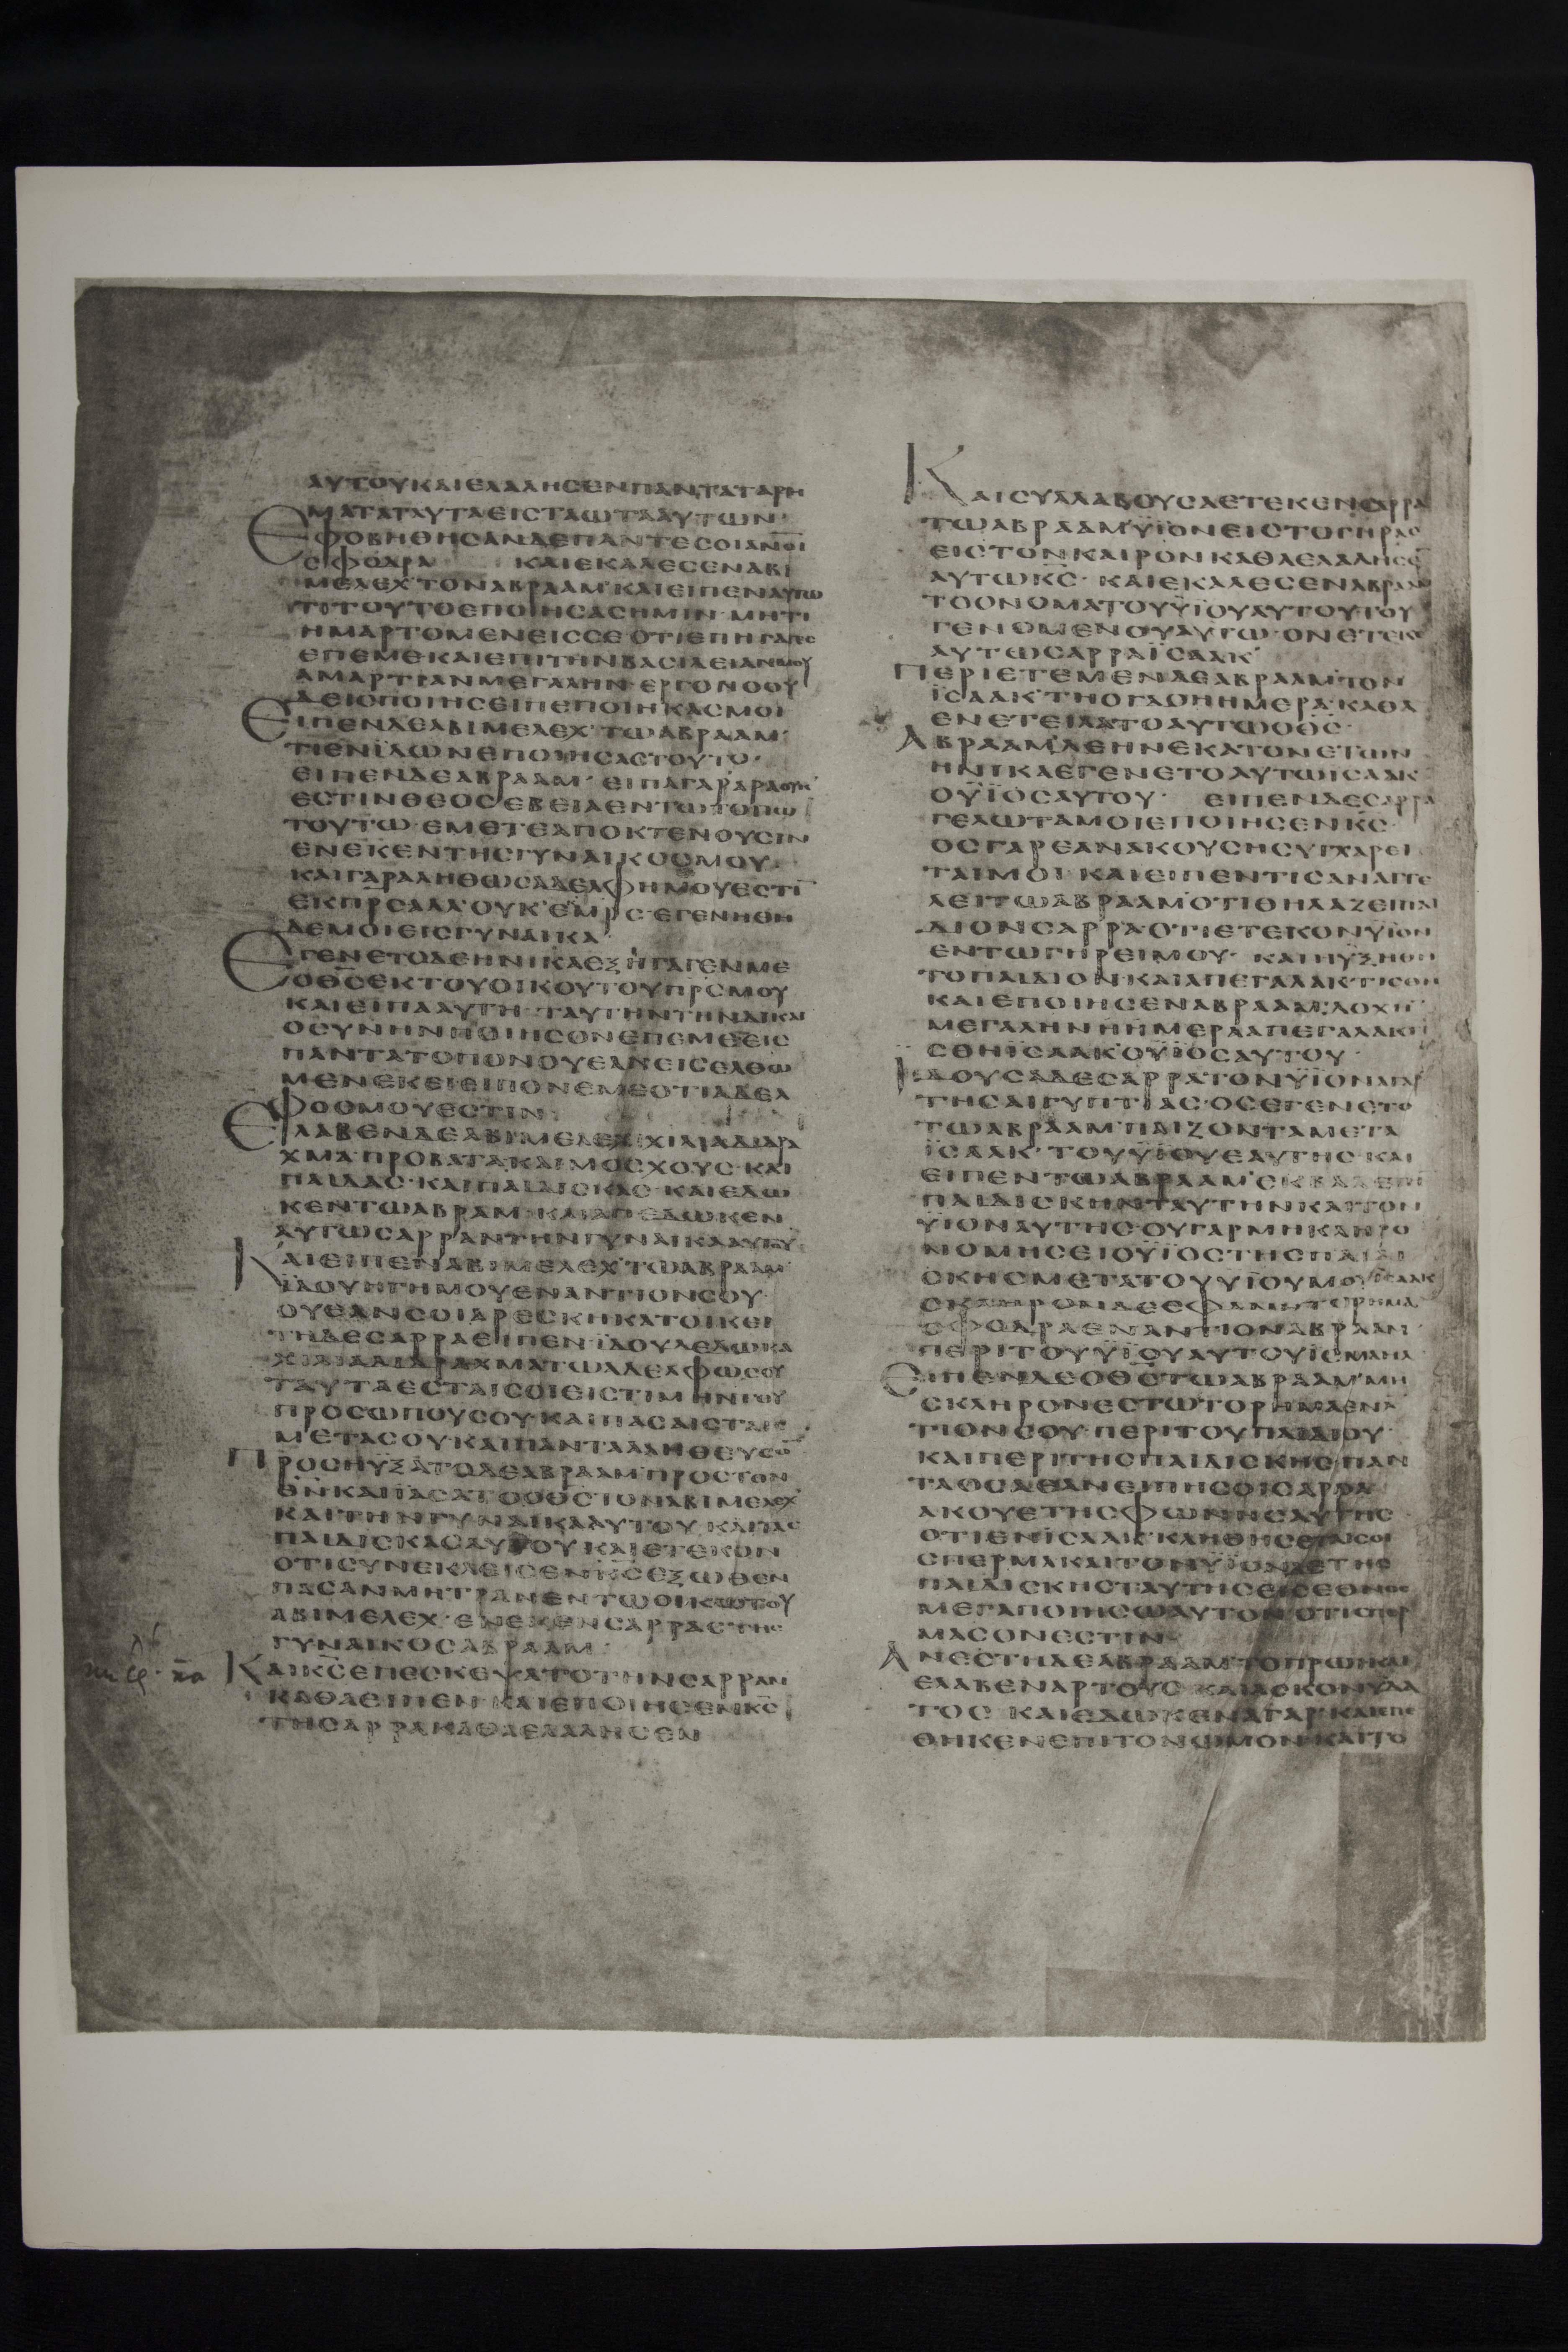 ΑΥΤΟΥΚΑΙΕΛΑΛΗCΕΝΠΑΝΤΑΤΑΡΗ
ΜΑΤΑΤΑΥΤΑΕΙCΤΑΩΤΑΑΥΤΩΝ·
ΕΦΟΒΗΘΗCΑΝΔΕΠΑΝΤΕCΟΙΑΝΟΙ
CΦΟΔΡΑ ΚΑΙΕΚΑΛΕCΕΝΑΒΙ
ΜΕΛΕΧ᾽ΤΟΝΑΒΡΑΑΜ᾽ΚΑΙΕΙΠΕΝΑΥΤΩ
ΤΙΤΟΥΤΟΕΠΟΙΗCΑCΗΜΙΝ·ΜΗΤΙ
ΗΜΑΡΤΟΜΕΝΕΙCCΕΟΤΙΕΠΗΓΑΓΕC
ΕΠΕΜΕΚΑΙΕΠΙΤΗΝΒΑCΙΛΕΙΑΝΜΟΥ
ΑΜΑΡΤΙΑΝΜΕΓΑΛΗΝ·ΕΡΓΟΝΟΟΥ
ΔΕΙCΠΟΙΗCΕΙΠΕΠΟΙΗΚΑCΜΟΙ
ΕΙΠΕΝΔΕΑΒΙΜΕΛΕΧ᾽ΤΩΑΒΡΑΑΜ᾽
ΤΙΕΝΙΔΩΝΕΠΟΙΗCΑCΤΟΥΤΟ·
ΕΙΠΕΝΔΕΑΒΡΑΑΜ·ΕΙΠΑΓΑΡΑΡΑΟΥΚ
ΕCΤΙΝΘΕΟCΕΒΕΙΑΕΝΤΩΤΟΠΩ
ΤΟΥΤΩ·ΕΜΕΤΕΑΠΟΚΤΕΝΟΥCΙΝ
ΕΝΕΚΕΝΤΗCΓΥΝΑΙΚΟCΜΟΥ·
ΚΑΙΓΑΡΑΛΗΘΩCΑΔΕΛΦΗΜΟΥΕCΤΙ̅
ΕΚΠ̅Ρ̅C̅ΑΛΛ᾽ΟΥΚ᾽ΕΚΜ̅Ρ̅C̅·ΕΓΕΝΗΘΗ
ΔΕΜΟΙΕΙCΓΥΝΑΙΚΑ·
ΕΓΕΝΕΤΟΔΕΗΝΙΚΑΕΞΗΓΑΓΕΝΜΕ
ΟΘ̅C̅ΕΚΤΟΥΟΙΚΟΥΤΟΥΠ̅Ρ̅C̅ΜΟΥ
ΚΑΙΕΙΠΑΑΥΤΗ·ΤΑΥΤΗΝΤΗΝΔΙΚΑΙ
ΟCΥΝΗΝΠΟΙΗCΟΝΕΠΕΜΕΕΙC
ΠΑΝΤΑΤΟΠΟΝΟΥΕΑΝΕΙCΕΛΘΩ
ΜΕΝΕΚΕΙΕΙΠΟΝΕΜΕΟΤΙΑΔΕΛ
ΦΟCΜΟΥΕCΤΙΝ·
ΕΛΑΒΕΝΔΕΑΒΙΜΕΛΕΧΧΙΛΙΑΔΙΔΡΑ
ΧΜΑ·ΠΡΟΒΑΤΑΚΑΙΜΟCΧΟΥC·ΚΑΙ
ΠΑΙΔΑC·ΚΑΙΠΑΙΔΙCΚΑC·ΚΑΙΕΔΩ
ΚΕΝΤΩΑΒΡΑΜ·ΚΑΙΑΠΕΔΩΚΕΝ
ΑΥΤΩCΑΡΡΑΝΤΗΝΓΥΝΑΙΚΑΑΥΤΟΥ
ΚΑΙΕΙΠΕΝΑΒΙΜΕΛΕΧ᾽ΤΩΑΒΡΑΑΜ
ΪΔΟΥΗΓΗΜΟΥΕΝΑΝΤΙΟΝCΟΥ·
ΟΥΕΑΝCΟΙΑΡΕCΚΗΚΑΤΟΙΚΕΙ
ΤΗΔΕCΑΡΡΑΕΙΠΕΝ·ΪΔΟΥΔΕΔΩΚΑ
ΧΙΛΙΑΔΙΔΡΑΧΜΑΤΩΑΔΕΛΦΩCΟΥ
ΤΑΥΤΑΕCΤΑΙCΟΙΕΙCΤΙΜΗΝΤΟΥ
ΠΡΟCΩΠΟΥCΟΥΚΑΙΠΑCΑΙCΤΑΙC
ΜΕΤΑCΟΥ·ΚΑΙΠΑΝΤΑΑΛΗΘΕΥCΟ̅
ΠΡΟCΗΥΞΑΤΟΔΕΑΒΡΑΑΜ᾽ΠΡΟCΤΟΝ
Θ̅Ν̅ΚΑΙΪΑCΑΤΟΟΘ̅C̅ΤΟΝΑΒΙΜΕΛΕΧ᾽
ΚΑΙΤΗΝΓΥΝΑΙΚΑΑΥΤΟΥ·ΚΑΙΤΑC
ΠΑΙΔΙCΚΑCΑΥΤΟΥΚΑΙΕΤΕΚΟΝ
ΟΤΙCΥΝΕΚΛΕΙCΕΝΚ̅C̅ΕΞΩΘΕΝ
ΠΑCΑΝΜΗΤΡΑΝΕΝΤΩΟΙΚΩΤΟΥ
ΑΒΙΜΕΛΕΧ·ΕΝΕΚΕΝCΑΡΡΑCΤΗC
ΓΥΝΑΙΚΟCΑΒΡΑΑΜ·
ΚΑΙΚ̅C̅ΕΠΕCΚΕΨΑΤΟΤΗΝCΑΡΡΑΝ
ΚΑΘΑΕΙΠΕΝ·ΚΑΙΕΠΟΙΗCΕΝΚ̅C̅
ΤΗCΑΡΡΑΚΑΘΑΕΛΑΛΗCΕΝ
ΚΑΙCΥΛΛΑΒΟΥCΑΕΤΕΚΕΝCΑΡΡΑ
ΤΩΑΒΡΑΑΜ᾽ΫΙΟΝΕΙCΤΟΓΗΡΑC
ΕΙCΤΟΝΚΑΙΡΟΝΚΑΘΑΕΛΑΛΗCΕ̅
ΑΥΤΩΚ̅C̅·ΚΑΙΕΚΑΛΕCΕΝΑΒΡΑΑΜ
ΤΟΟΝΟΜΑΤΟΥΫΙΟΥΑΥΤΟΥΤΟΥ
ΓΕΝΟΜΕΝΟΥΑΥΤΩ·ΟΝΕΤΕΚΕ
ΑΥΤΩCΑΡΡΑΪCΑΑΚ᾽
ΠΕΡΙΕΤΕΜΕΝΔΕΑΒΡΑΑΜ᾽ΤΟΝ
ΪCΑΑΚ᾽ΤΗΟΓΔΟΗΗΜΕΡΑ·ΚΑΘΑ
ΕΝΕΤΕΙΛΑΤΟΑΥΤΩΟΘ̅C̅·
ΑΒΡΑΑΜ᾽ΔΕΗΝΕΚΑΤΟΝΕΤΩΝ
ΗΝΙΚΑΕΓΕΝΕΤΟΑΥΤΩΙCΑΑΚ
ΟΫΙΟCΑΥΤΟΥ· ΕΙΠΕΝΔΕCΑΡΡΑ
ΓΕΛΩΤΑΜΟΙΕΠΟΙΗCΕΝΚ̅C̅·
ΟCΓΑΡΕΑΝΑΚΟΥCΗCΥΓΧΑΡΕΙ
ΤΑΙΜΟΙ·ΚΑΙΕΙΠΕΝΤΙCΑΝΑΓΓΕ
ΛΕΙΤΩΑΒΡΑΑΜ᾽ΟΤΙΘΗΛΑΖΕΙΠΑΙ
ΔΙΟΝCΑΡΡΑΟΤΙΕΤΕΚΟΝΫΙΟΝ
ΕΝΤΩΓΗΡΕΙΜΟΥ· ΚΑΙΗΥΞΗΘΗ
ΤΟΠΑΙΔΙΟΝ·ΚΑΙΑΠΕΓΑΛΑΚΤΙCΘΗ
ΚΑΙΕΠΟΙΗCΕΝΑΒΡΑΑΜ᾽ΔΟΧΗ̅
ΜΕΓΑΛΗΝΗΗΜΕΡΑΑΠΕΓΑΛΑΚΤΙ
CΘΗΪCΑΑΚ᾽ΟΫΙΟCΑΥΤΟΥ·
ΙΔΟΥCΑΔΕCΑΡΡΑΤΟΝΫΙΟΝΑΓΑΡ
ΤΗCΑΙΓΥΠΤΙΑC·ΟCΕΓΕΝΕΤΟ
ΤΩΑΒΡΑΑΜ᾽ΠΑΙΖΟΝΤΑΜΕΤΑ
ΪCΑΑΚ᾽ΤΟΥΫΙΟΥΕΑΥΤΗC·ΚΑΙ
ΕΙΠΕΝΤΩΑΒΡΑΑΜ᾽ΕΚΒΑΛΕΤΗΝ
ΠΑΙΔΙCΚΗΝΤΑΥΤΗΝΚΑΙΤΟΝ
ΫΙΟΝΑΥΤΗC·ΟΥΓΑΡΜΗΚΛΗΡΟ
ΝΟΜΗCΕΙΟΥΪΟCΤΗCΠΑΙΔΙ
CΚΗCΜΕΤΑΤΟΥΫΙΟΥΜΟΥΪCΑΑΚ
CΚΛΗΡΟΝΔΕΕΦΑΝΗΤΟΡΗΜΑ
CΦΟΔΡΑΕΝΑΝΤΙΟΝΑΒΡΑΑΜ·
ΠΕΡΙΤΟΥΫΙΟΥΑΥΤΟΥΪCΜΑΗΛ
ΕΙΠΕΝΔΕΟΘ̅C̅ΤΩΑΒΡΑΑΜ᾽ΜΗ
CΚΛΗΡΟΝΕCΤΩΤΟΡΗΜΑΕΝΑ̅
ΤΙΟΝCΟΥ·ΠΕΡΙΤΟΥΠΑΙΔΙΟΥ·
ΚΑΙΠΕΡΙΤΗCΠΑΙΔΙCΚΗC·ΠΑΝ
ΤΑΟCΑΕΑΝΕΙΠΗCΟΙCΑΡΡΑ
ΑΚΟΥΕΤΗCΦΩΝΗCΑΥΤΗC
ΟΤΙΕΝΪCΑΑΚ᾽ΚΛΗΘΗCΕΤΑΙCΟΙ
CΠΕΡΜΑΚΑΙΤΟΝΫΙΟΝΔΕΤΗC
ΠΑΙΔΙCΚΗCΤΑΥΤΗCΕΙCΕΘΝΟC
ΜΕΓΑΠΟΙΗCΩΑΥΤΟΝΟΤΙCΠΕΡ
ΜΑCΟΝΕCΤΙΝ·
ΑΝΕCΤΗΔΕΑΒΡΑΑΜ᾽ΤΟΠΡΩΙΚΑΙ
ΕΛΑΒΕΝΑΡΤΟΥC·ΚΑΙΑCΚΟΝΫΔΑ
ΤΟC ΚΑΙΕΔΩΚΕΝΑΓΑΡ᾽ΚΑΙΕΠΕ
ΘΗΚΕΝΕΠΙΤΟΝΩΜΟΝ·ΚΑΙΤΟ